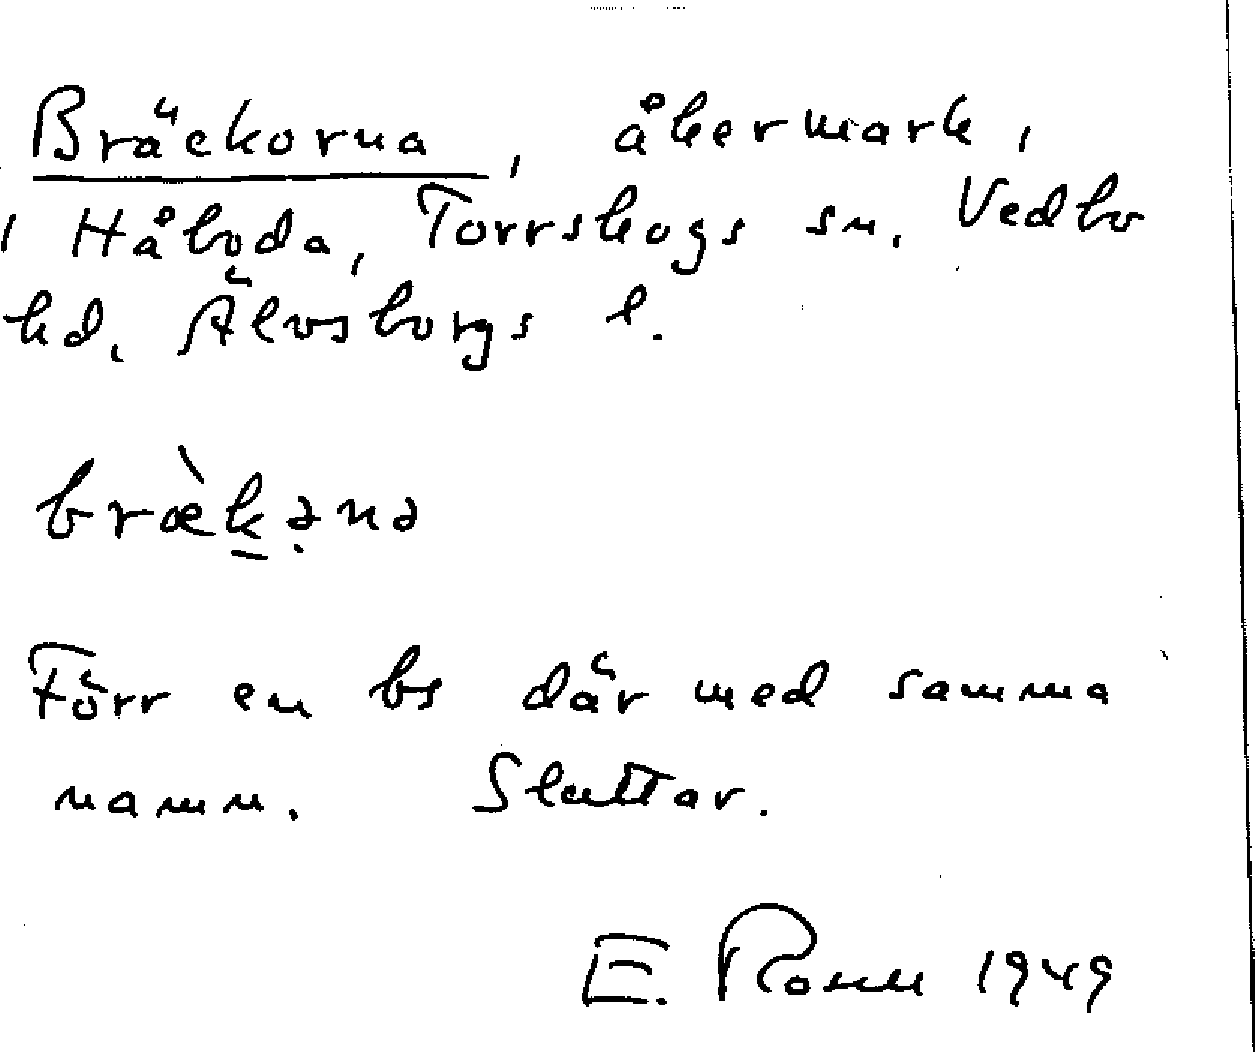 Bräckorna, åkermark,
i Håbyda, Torrskogs sn, Vedbo
hd, Älvsborgs l.
bræ̀k̠ə̣nə
Förr en bs där med samma
namn. Sluttar.
E. Rosell 1949